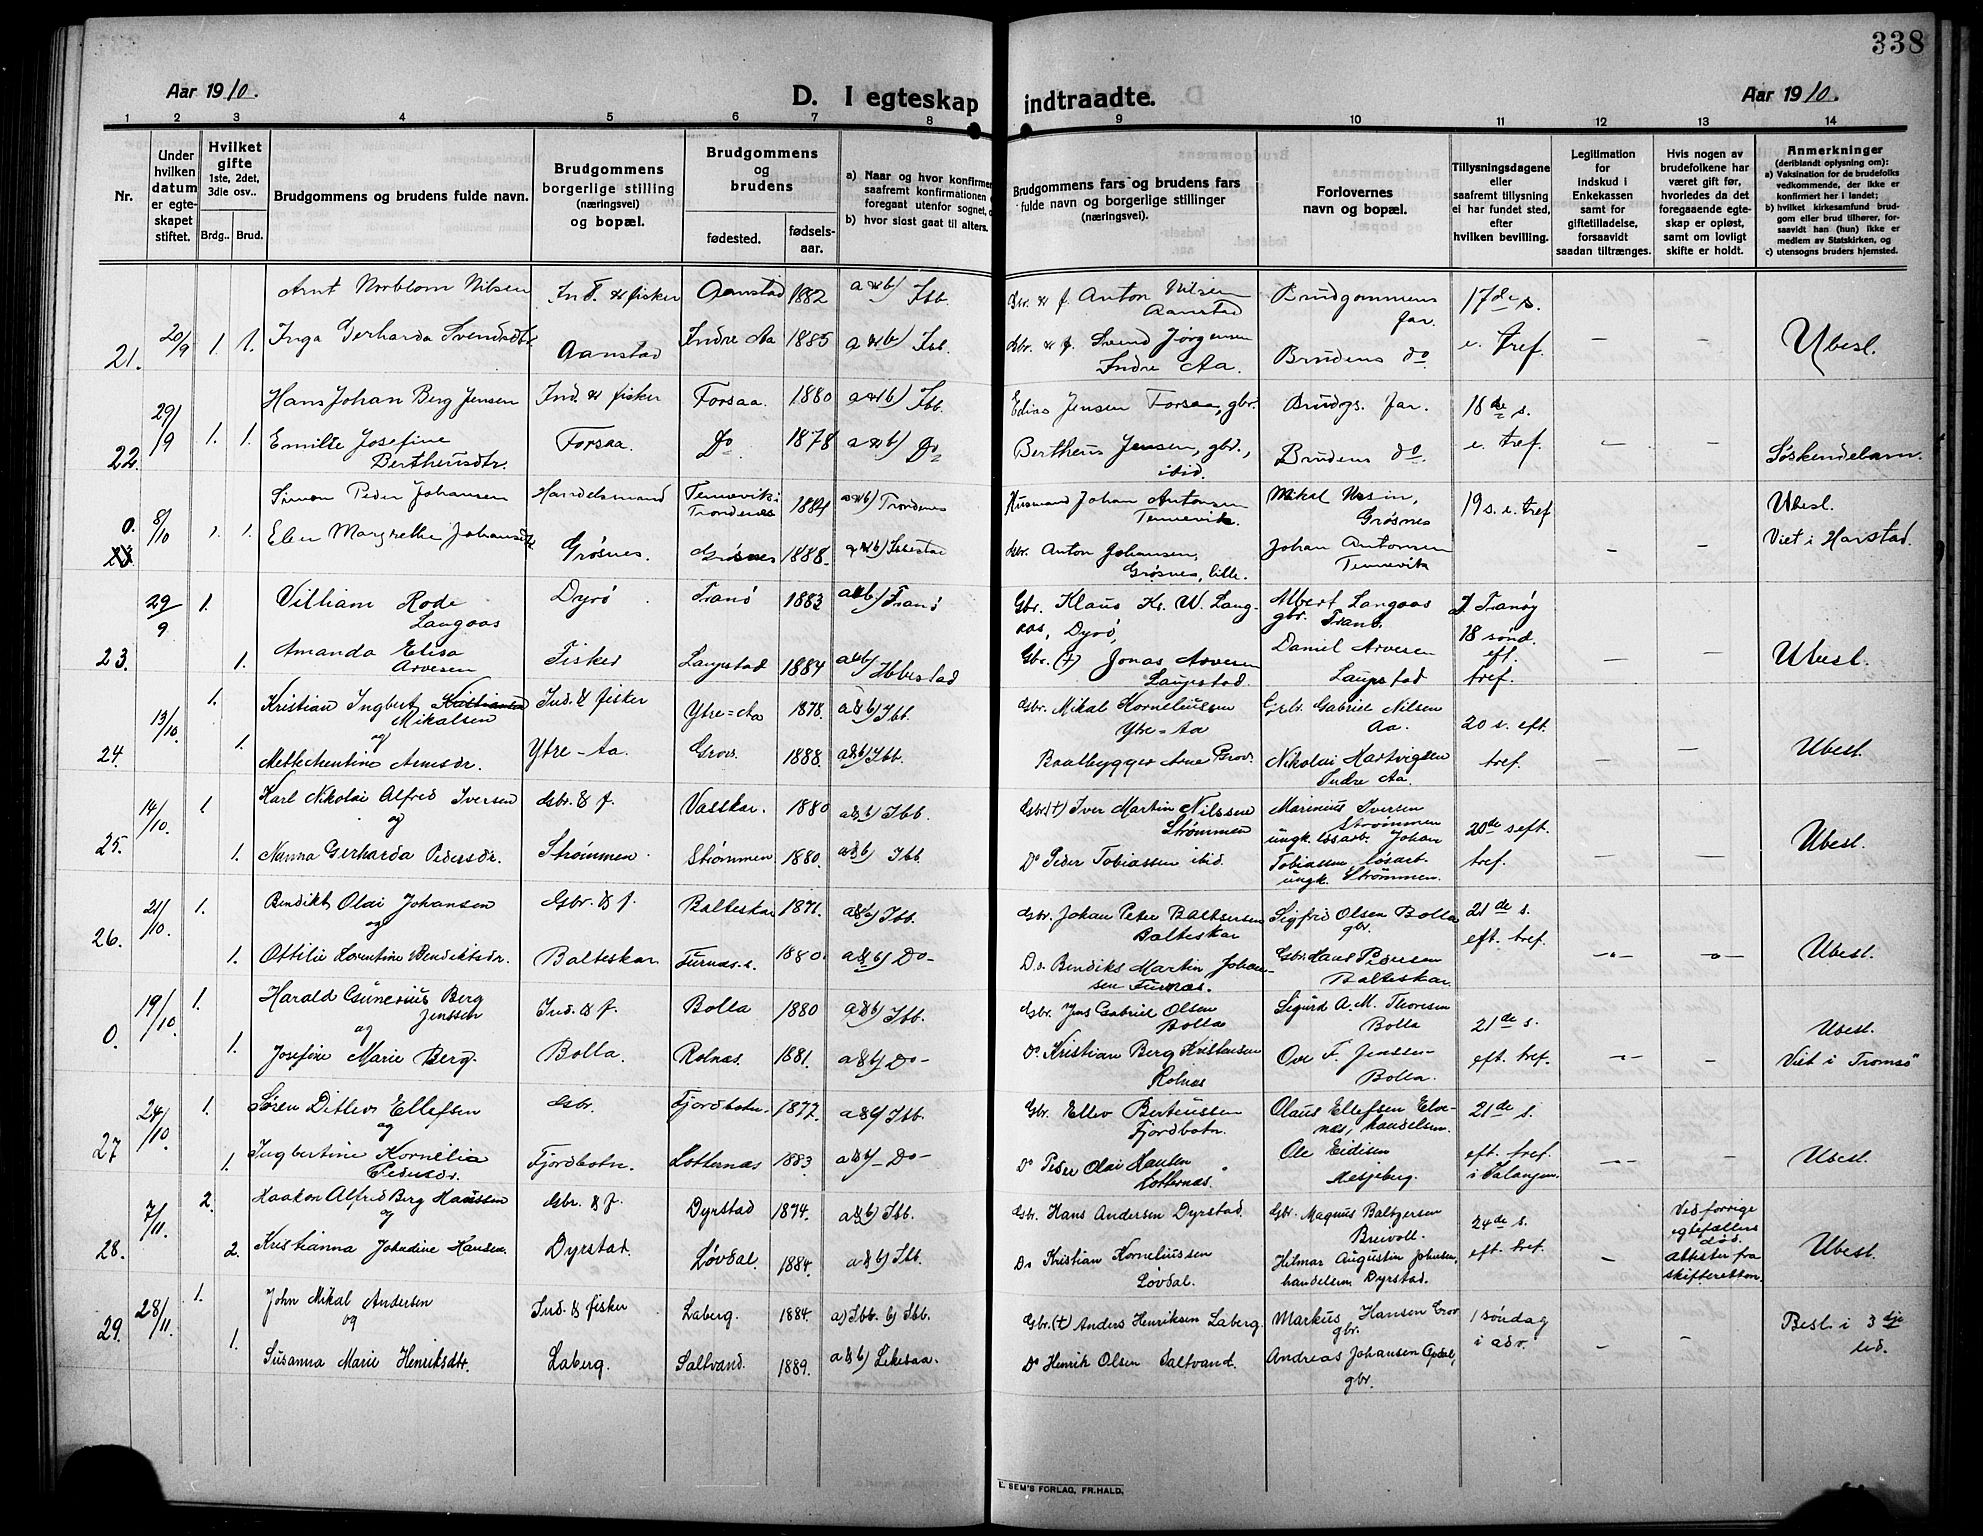 338
Aar 1910.
D. I egteskap indtraadte.
Aar 1910.
1 2 3 4 5 6 7 8 9 10 11 12 13 14
Nr.
Under hvilken datum er egteskapet stiftet.
Hvilket gifte 1ste, 2det, 3die osv..
Brdg.. Brud.
Brudgommens og brudens fulde navn.
Brudgommens borgerlige stilling (næringsvei) og bopæl.
Brudgommens og brudens
fødested.
fødselsaar.
a) Naar og hvor konfirmer
saafremt konfirmationen
foregaat utenfor sognet,
b) hvor sidst gaat til alters.
Brudgommens fars og brudens fars fulde navn og borgerlige stillinger (næringsvei).
Forlovernes navn og bopæl.
Tillysningsdagene eller saafremt tillysning ei har fundet sted, efter hvilken bevilling.
Legitimation for indskud i Enkekassen samt for giftetilladelse, forsaavidt saadan tiltrænges.
Hvis nogen av brudefolkene har været gift før, hvorledes da det foregaaende egteskap er opløst, samt om lovligt skifte er holdt.
Anmerkninger (deriblandt oplysning om):
a) Vaksination for de brudefolks vedkommende, der ikke er konfirmert her i landet;
b) hvilket kirkesamfund brudgom eller brud tilhører, forsaavidt han (hun) ikke er medlem av Statskirken, og
c) utensogns bruders hjemsted.
Arnt Nilsen Ind. & fisker Aanstad 1882 a & b) Ibb. Gbr. & f. Anton Nilsen Aanstad Brudgommens far. 17de s.
21. 20/9 1. 1. Inga Gerharda Svendsdtr. Aanstad Indre Aa 1885 a & b) Ibb. Gbr. & f. Svend Jørgensen Indre Aa. Brudens do e. tref. — — Ubesl.
Hans Johan Berg Jensen Ind. & fisker Forsaa. 1880 a & b) Ibb. Edias Jensen Forsaa, gbr. Brudgs. far. 18de s.
22. 29/9 1. 1. Emilie Josefine Bertheusdtr. Forsaa. Do 1878 a & b) Do Bertheus Jensen, gbr., ibid. Brudens do. e. tref. — — Søskendebarn.
Simon Peder Johansen Handelsmand Tennevik i Trondenes 1884 a & b) Trondenes Husmand Johan Antonsen Tennevik. Mikal Grøsnes 19 s. e. tref Ubesl.
0. 8/10 1. 1. Elen Margrethe Johansdtr Grøsnes. Grøsnes 1888. a & b) Ibbestad Gbr. Anton Johansen, Grøsnes, lille. Johan Antonsen Tennevik — — Viet i Harstad.
29/9 1. Vilhiam Rode Langaas Dyrø Tranø 1883 a & b) Tranø Gbr. Klaus Kr. W. Langaas, Dyrø, Albert Langaas gbr. Tranø. I Tranøy 18 sønd.
23. 1. Amanda Elisa Arvesen Fisker Laupstad 1884 a & b) Ibbestad Gbr. (†) Jonas Arvesen Laupstad. Daniel Arvesen Laupstad eft. tref. — — Ubesl.
13/10 1. Kristian Ingbert Mikalsen og Ind. & fisker Ytre-Aa 1878. a & b) Ibb. Gbr. Mikal Korneliussen Ytre-Aa Gbr. Gabriel Nilsen Aa. 20 s. eft.
24. 1. Mette Arentine Arnesdr. Ytre-Aa. Grov. 1888. a & b) Ibb. Baatbygger Arne Grov. Nikolai Hartvigsen Indre Aa tref. — — Ubesl.
14/10. 1. Karl Nikolai Alfred Iversen og Gbr. & f. Vasskar. 1880 a & b) Ibb. Gbr. (†) Iver Martin Nilssen Strømmen Marinius Iversen Strømmen ungk. løsarb. 20de s eft.
25. 1. Nanna Gerharda Pedersdr. Strømmen. Strømmen 1880. a & b) Ibb. Do Peder Tobiassen ibid. Johan Tobiassen, løsarb. ungk. Strømmen. tref. — — Ubesl.
21/10. 1. Bendikt Olai Johansen og Gbr. & f. Balteskar 1871. a & b) Ibb. Gbr. Johan Peter Baltsersen Balteskar Sigfrid Olsen Bolla gbr. 21de s.
26. 1. Ottilie Lorentine Bendiktsdr. Balteskar. Furnæs. 1880. a & b) Do- Do. Bendiks Martin Johansen Furnæs. Gbr. Hans Pedersen Balteskar. eft. tref. — — Ubesl.
19/10. 1. Harald Gunerius Berg Jenssen og Ind. & f. Bolla 1880 a & b) Ibb. Gbr. Jens Gabriel Olsen Bolla Sigurd A. M. Thoresen Bolla 21de s. Ubesl.
0. 1. Josefine Marie Berg. Bolla. Rolnæs. 1881. a & b) Do- Do Kristian Berg Kristensen Rolnæs Ove F. Jenssen Bolla. eft. tref. — — Viet i Tromsø
24/10 1. Søren Ditlev Ellefsen og Gbr. Fjordbotn. 1877. a & b) Ibb. Gbr. Ellev Berteussen Fjordbotn. Olaus Ellefsen Elvenæs, handelsm. 21de s.
27 1. Ingbertine Kornelia Pedersdr. Fjordbotn. Lotternæs 1883 a & b) Do- Do Peder Olai Hansen Lotternæs. Ole Eidisen eft. tref. i Salangen. — — Ubesl.
7/11. 2. Haakon Alfred Berg Hanssen og Gbr. & f. Dyrstad 1874. a & b) Ibb. Gbr. Hans Andersen Dyrstad. Gbr. Magnus Baltzersen Breivoll. 24de s. Ved forrige egtefællens død. Attester fra skifteretten.
28. 2. Kristianna Johndine Hansen. Dyrstad. Løvdal. 1884. a & b) Ibb. Do Kristian Korneliussen Løvdal. Hilmar Augustin Johnsen, handelsm. Dyrstad. eft. tref. — Ubesl.
28/11. 1. John Mikal Andersen og Ind. & fisker Laberg. 1884. a) Ibb. b) Ibb. Gbr. (†) Anders Henriksen Laberg. Markus Hansen Grov gbr. 1 søndag Besl. i 3dje led.
29. 1. Susanna Marie Henriksdtr. Laberg. Saltvand. 1889. a & b) Do Henrik Olsen Saltvand. Andreas Johansen gbr. i adv. — —
E. SEM'S FORLAG, FR.HALD.